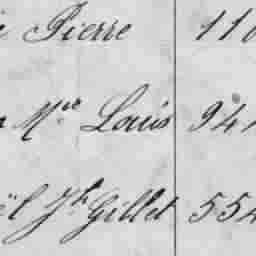 Pierre 110
Mre Louis 941
ël Jh Gillet 554